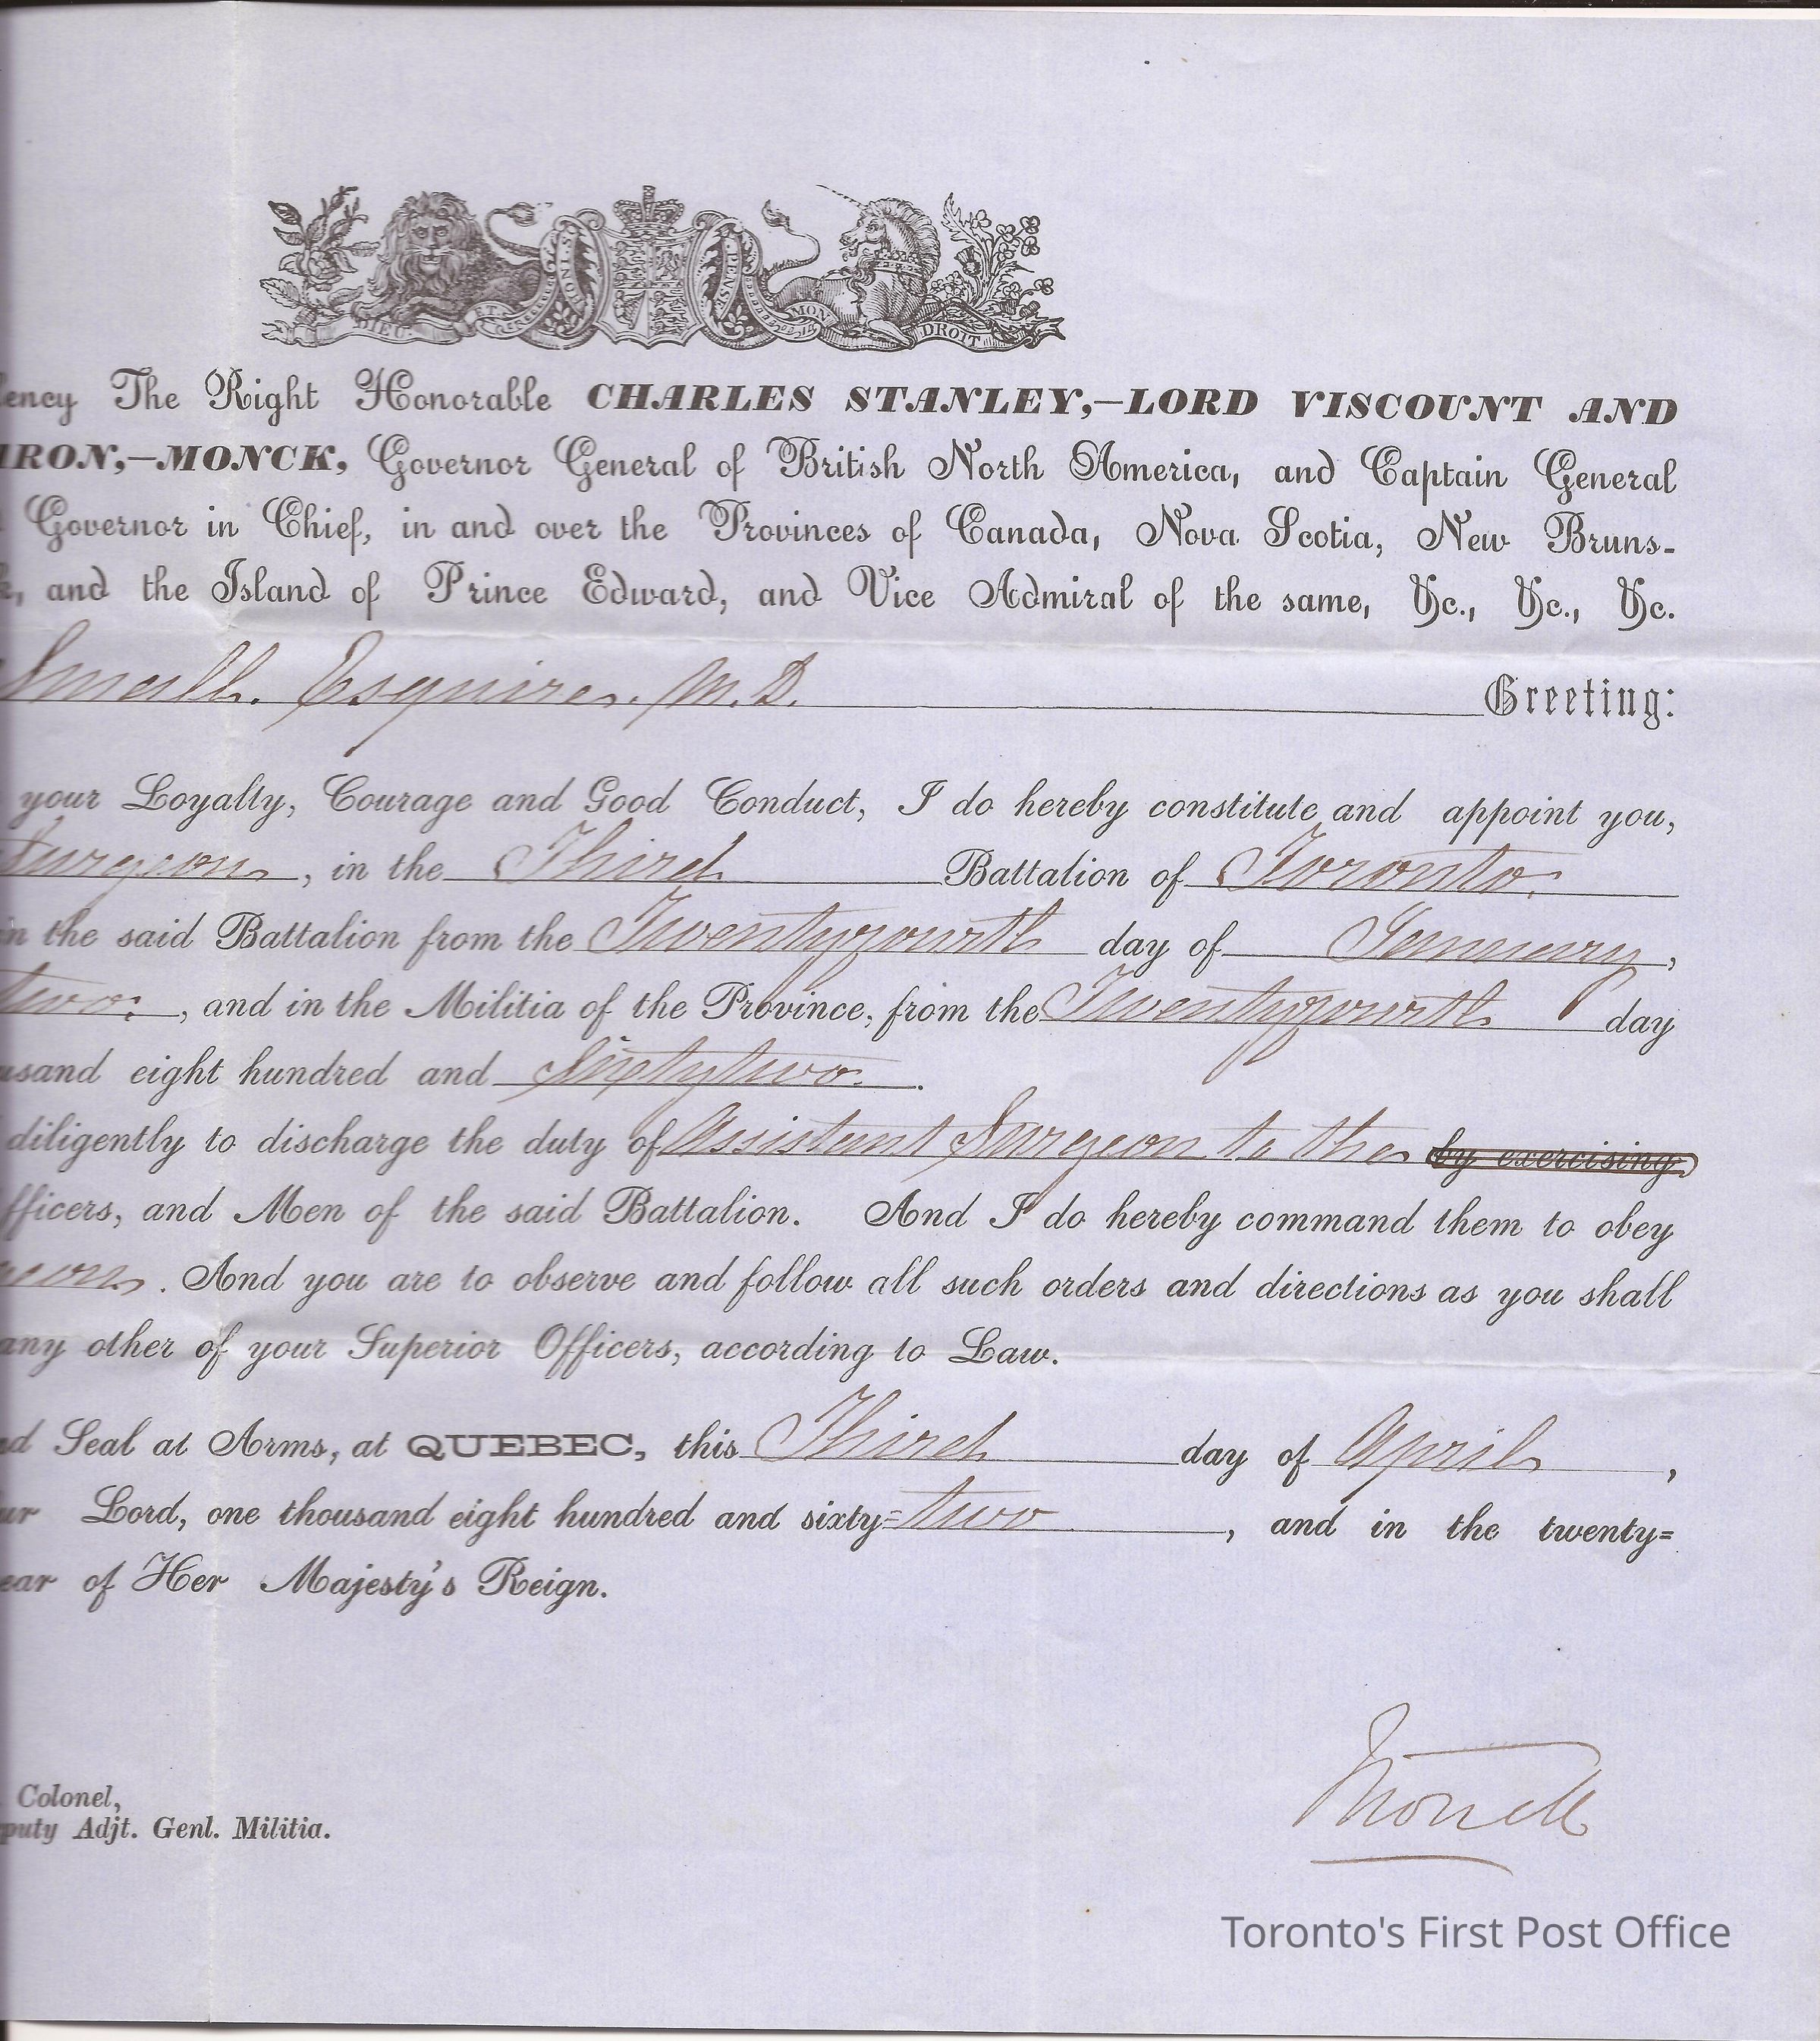 HONI SOIT PENSE
DIEU ET MON DROIT
ency The Right Honorable CHARLES STANLEY,—LORD VISCOUNT AND
RON,—MONCK, Governor General of British North America, and Captain General
Governor in Chief, in and over the Provinces of Canada, Nova Scotia, New Bruns-
k, and the Island of Prince Edward, and Vice Admiral of the same, &c., &c., &c.
Small. Esquire. M.D. Greeting:
your Loyalty, Courage and Good Conduct, I do hereby constitute and appoint you,
Surgeon, in the Third Battalion of Toronto.
in the said Battalion from the Twentyfourth day of January,
two, and in the Militia of the Province, from the Twentyfourth day
usand eight hundred and Sixtytwo.
diligently to discharge the duty of Assistant Surgeon to the by exercising
fficers, and Men of the said Battalion. And I do hereby command them to obey
geon. And you are to observe and follow all such orders and directions as you shall
any other of your Superior Officers, according to Law.
nd Seal at Arms, at QUEBEC, this Third day of April,
ur Lord, one thousand eight hundred and sixty=two, and in the twenty=
ear of Her Majesty's Reign.
Monck
Colonel,
puty Adjt. Genl. Militia.
Toronto's First Post Office